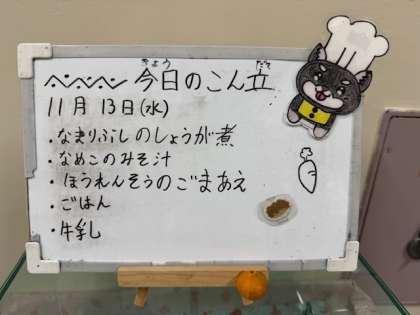 今日のこん立
きょう だて
11月 13日(水)
・なまりぶしのしょうが煮
・なめこのみそ汁
・ほうれんそうのごまあえ
・ごはん
・牛乳